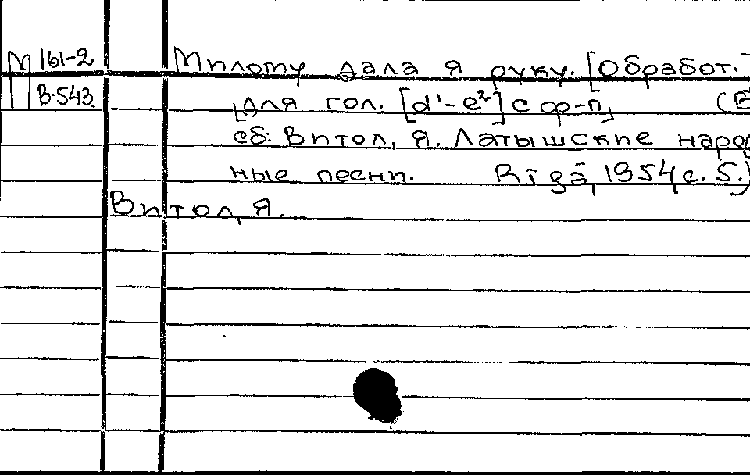 М 161-2 Милому дала я руку. [Обработ.
В-543 для гол. [d'-e²] с ф-п, (В
сб: Витол, Я. Латышские народ
ные песни. Rīgā, 1954, с. 5.)
Витол, Я.